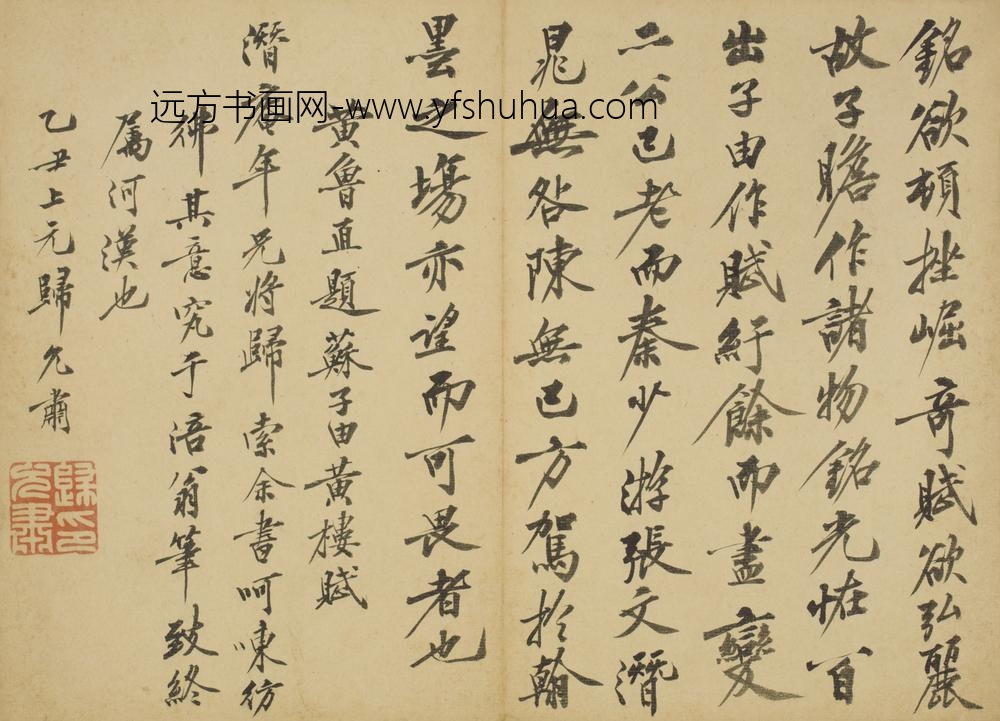 銘欲頓挫崛奇賦欲弘麗
故子瞻作諸物銘光怪百
出子由作賦紆餘而盡變
二公已老而秦少游張文潛
晁無咎陳無己方駕於翰
墨之場亦望而可畏者也
黃魯直題蘇子由黃樓賦
潛庵年兄將歸索余書呵凍彷
彿其意究于涪翁筆致終
屬河漢也
乙丑上元歸允肅
歸允肅印
远方书画网-www.yfshuhua.com